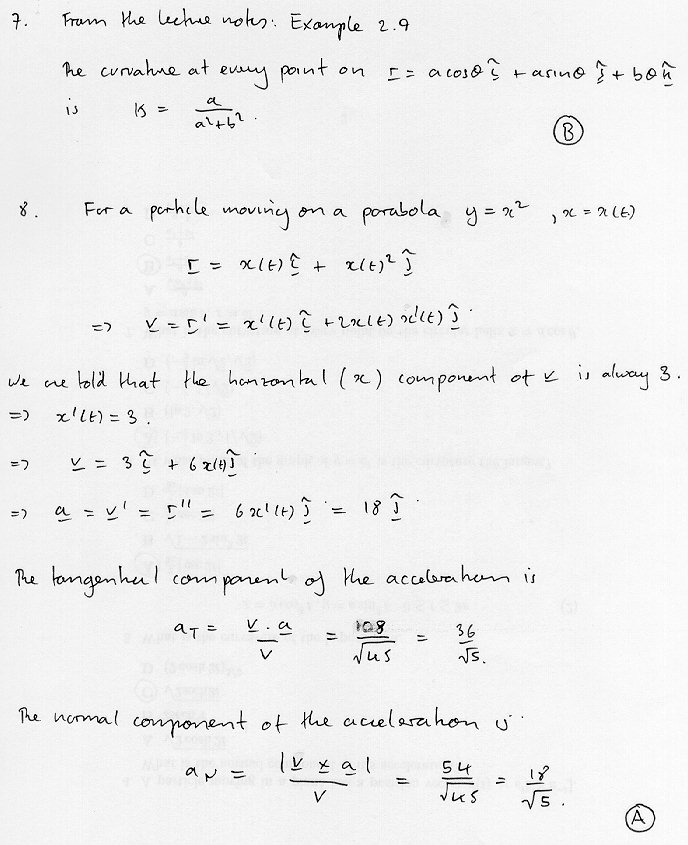 7. From the lecture notes: Example 2.9
The curvature at every point on r = a cosθ î + a sinθ ĵ + bθ k̂
is κ = a/(a²+b²).
(B)
8. For a particle moving on a parabola y = x², x = x(t)
r = x(t) î + x(t)² ĵ
=> v = r' = x'(t) î + 2x(t) x'(t) ĵ
We are told that the horizontal (x) component of v is alway 3.
=> x'(t) = 3.
=> v = 3 î + 6x(t) ĵ
=> a = v' = r'' = 6x'(t) ĵ = 18 ĵ
The tangential component of the acceleration is
a_T = v . a / v = 108/√45 = 36/√5.
The normal component of the acceleration is
a_N = |v × a| / v = 54/√45 = 18/√5.
(A)